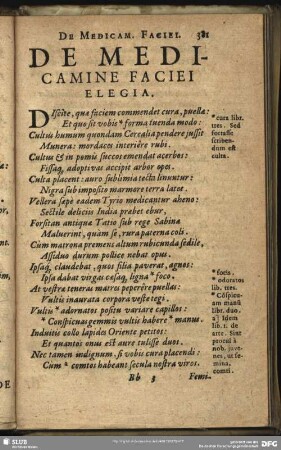 DE MEDICAM. FACIEI. 381
DE MEDI-
CAMINE FACIEI
ELEGIA.
DIscite, quæ faciem commendet cura, puellæ:
Et quo sit vobis * forma tuenda modo:
Cultus humum quondam Cerealia pendere jussit
Munera: mordaces interiêre rubi.
Cultus & in pomis succos emendat acerbos:
Fissaq, adoptivas accipit arbor opes.
Culta placent: auro sublimia tecta linuntur:
Nigra sub imposito marmore terra latet.
Vellera sæpe eadem Tyrio medicantur aheno:
Sectile deliciis India præbet ebur.
Forsitan antiquæ Tatio sub rege Sabinæ
Maluerint, quàm se, rura paterna coli.
Cum matrona premens altum rubicunda sedile,
Assiduo durum pollice nebat opus.
Ipsaq, claudebat, quos filia paverat, agnos:
Ipsa dabat virgas cæsaq, ligna * foco.
At vestræ teneras matres peperêre puellas:
Vultis inaurata corpora veste tegi.
Vultis * adornatos positu variare capillos:
* Conspicuas gemmis vultis habere * manus.
Induitis collo lapides Oriente petitos:
Et quantos onus est aure tulisse duos.
Nec tamen indignum, si vobis cura placendi:
Cum * comtos habeant secula nostra viros.
Bb 3 Femi-
* cura libr.
tres. Sed
fortasse
scriben-
dum est
culta.
* focis.
* odoratos
lib. tres.
* Cōspicu-
am manū
libr. duo.